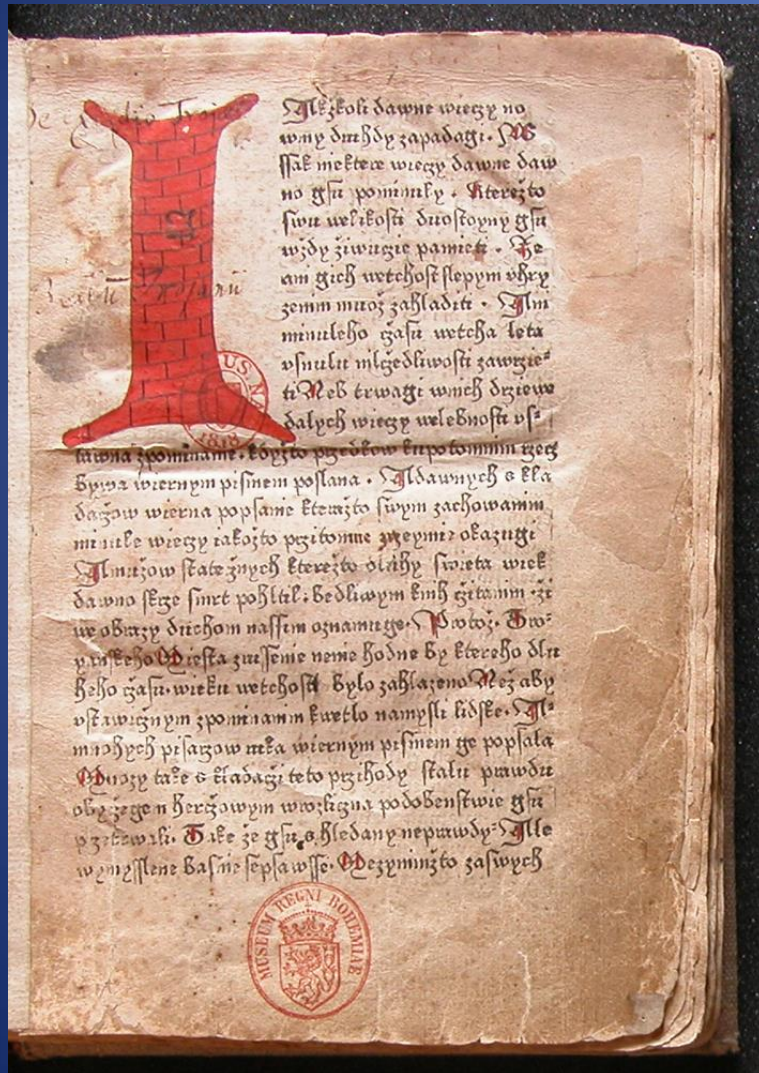 Alkzkoli dawne wieczy no
winy druhdy zapadagi. W
ssak niektere wieczy dawne daw
no gsu pominuly. Kterezto
swu welikosti duostoyny gsu
wzdy ziwuczie pamieti. Ze
am gich wetchost slepym uhry
zenim muoz zahladiti. Ani
minuleho czasu wetcha leta
usnulu mlczedlivosti zawrzie=
ti Neb trwagi wnich drziewe
dalych wieczy welebnosti us=
tawna zpominanie. kdyzto przedkow kupotomnim rzecz
bywa wiernym pismem poslana. A dawnych skla
daczow wierna popsanie kterazto swym zachowanim
minule wieczy iakozto przitomne zgewnie okazugi
A muzow statecznych kterezto dluhy swieta wiek
dawno skrze smrt pohltil. bedliwym knih czitanim zi
we obrazy duchom nassim oznamuge. Protoz. Tro=
yanskeho Miesta zrussenie nenie hodne by ktereho dlu
heho czasu. wieku wetchosti bylo zahlazeno Nez aby
ustawicznym zpominanim kwetlo namysli lidske. A=
mnohych pisarzow ruka wiernym pismem ge popsala
Mnozy take skladagi teto przihody stalu prawdu
obyczegem herczowym wrozliczna podobenstwie gsu
przetwarzili. Take ze gsu shledany neprawdy. Ale
wymysslene basnie sepsawsse. Mezynimizto zaswych
MUSEUM REGNI BOHEMIAE
1818